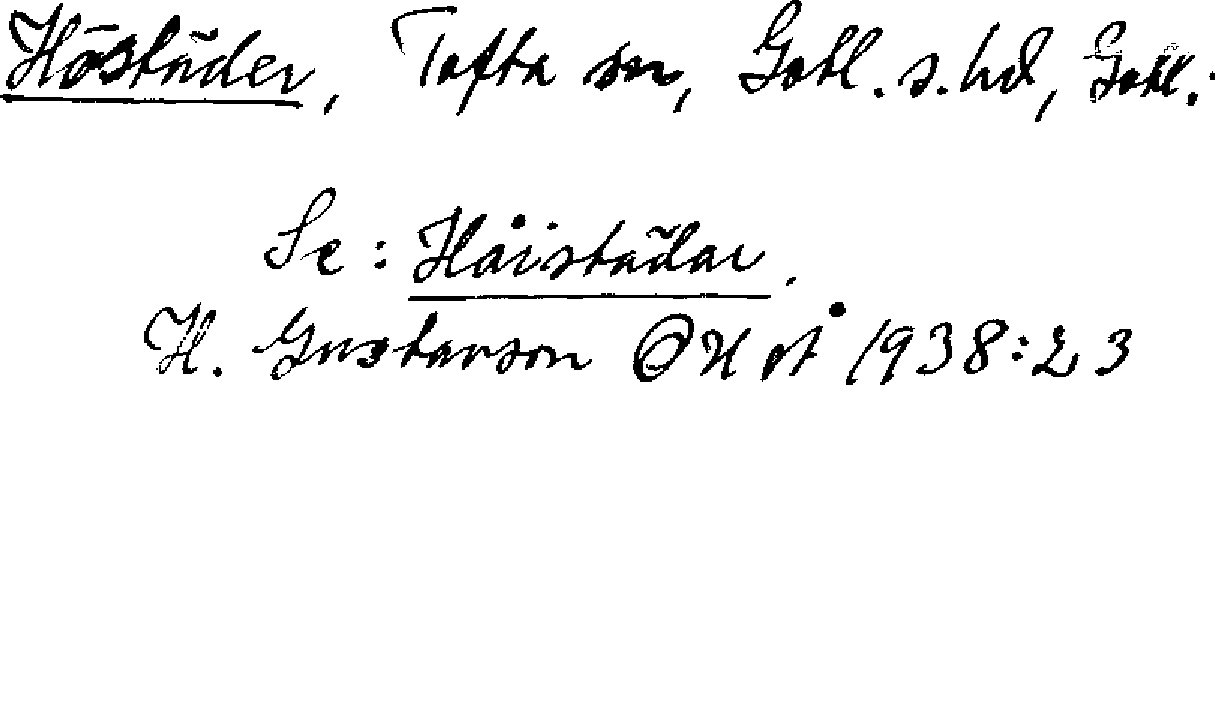 Höstäder, Tofta sn, Gotl. s. hd, Gotl.
Se: Håistädar.
H. Gustavson 1938:23